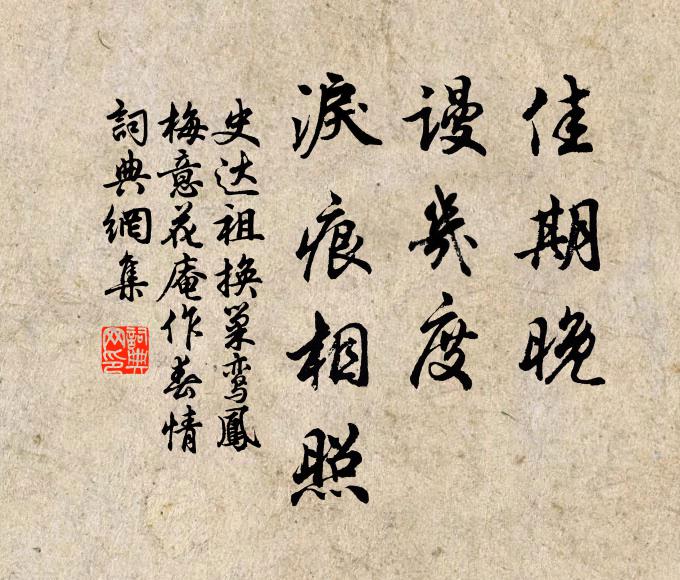 佳期晚
谩幾度
淚痕相照
史达祖換巢鸾鳳
梅意花庵作春情
詞典網集
詞典
网印